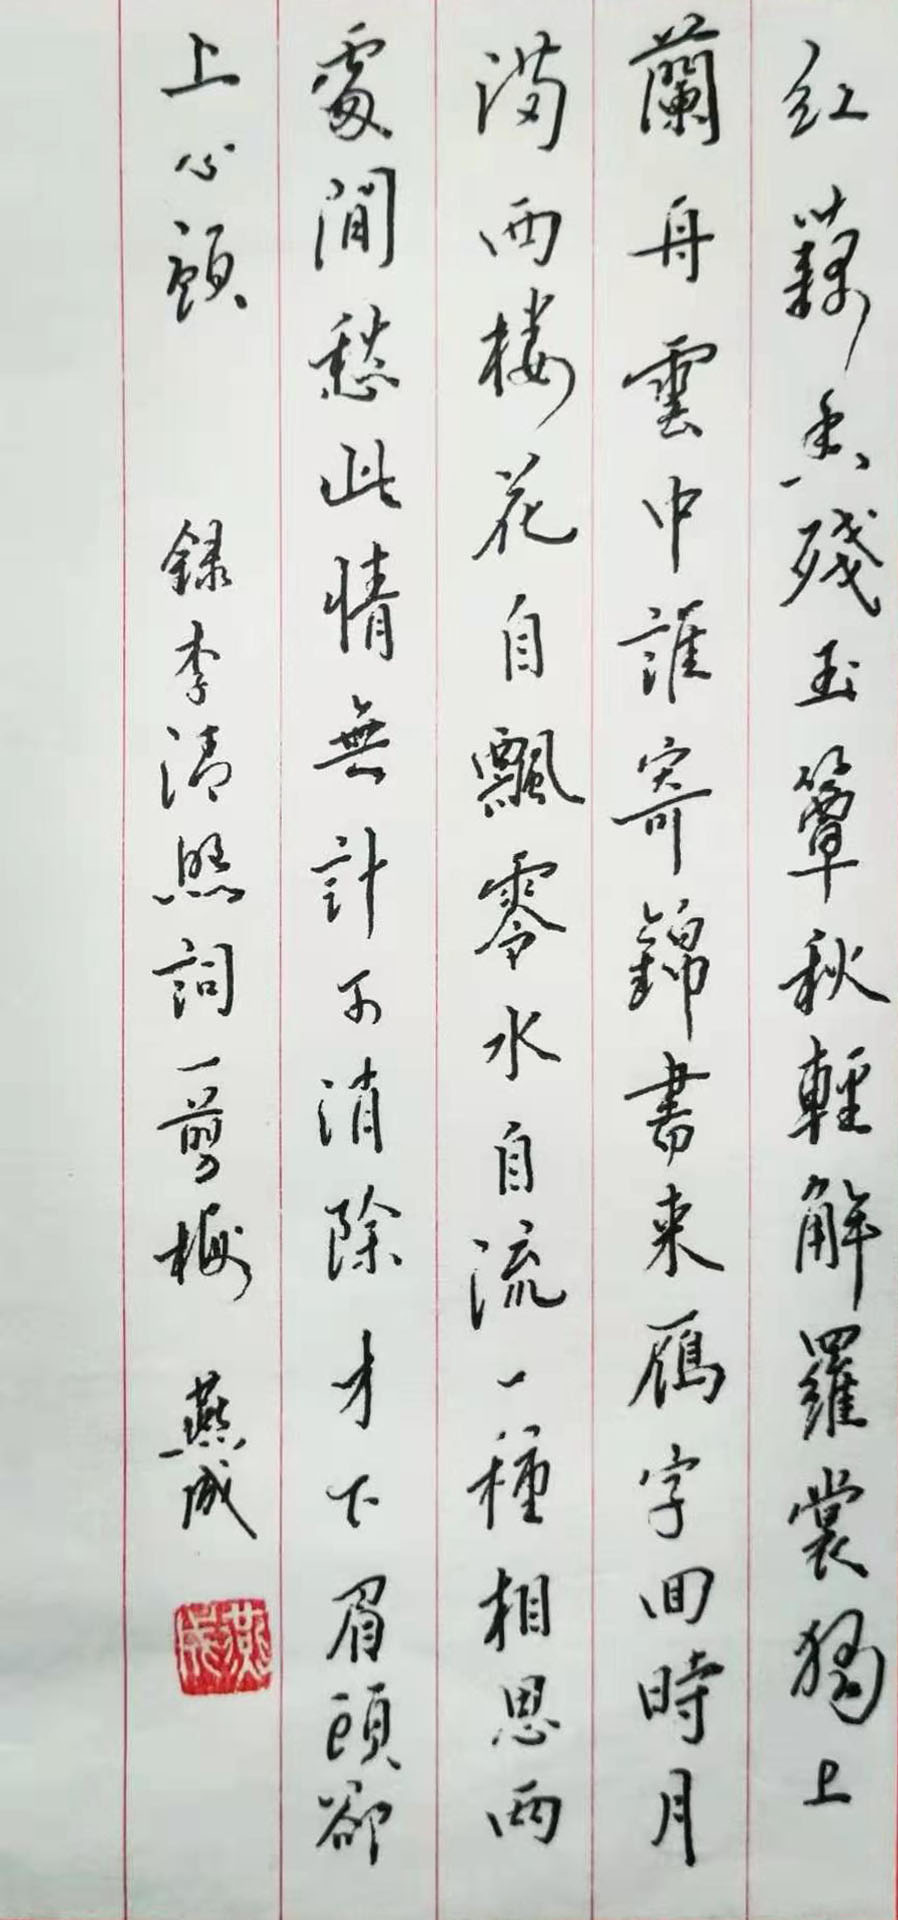 红藕香殘玉簟秋輕解羅裳獨上
蘭舟雲中誰寄錦書来雁字回時月
満西楼花自飄零水自流一種相思兩
處閒愁此情無計可消除才下眉頭卻
上心頭 録李清照詞一剪梅 燕成
燕成